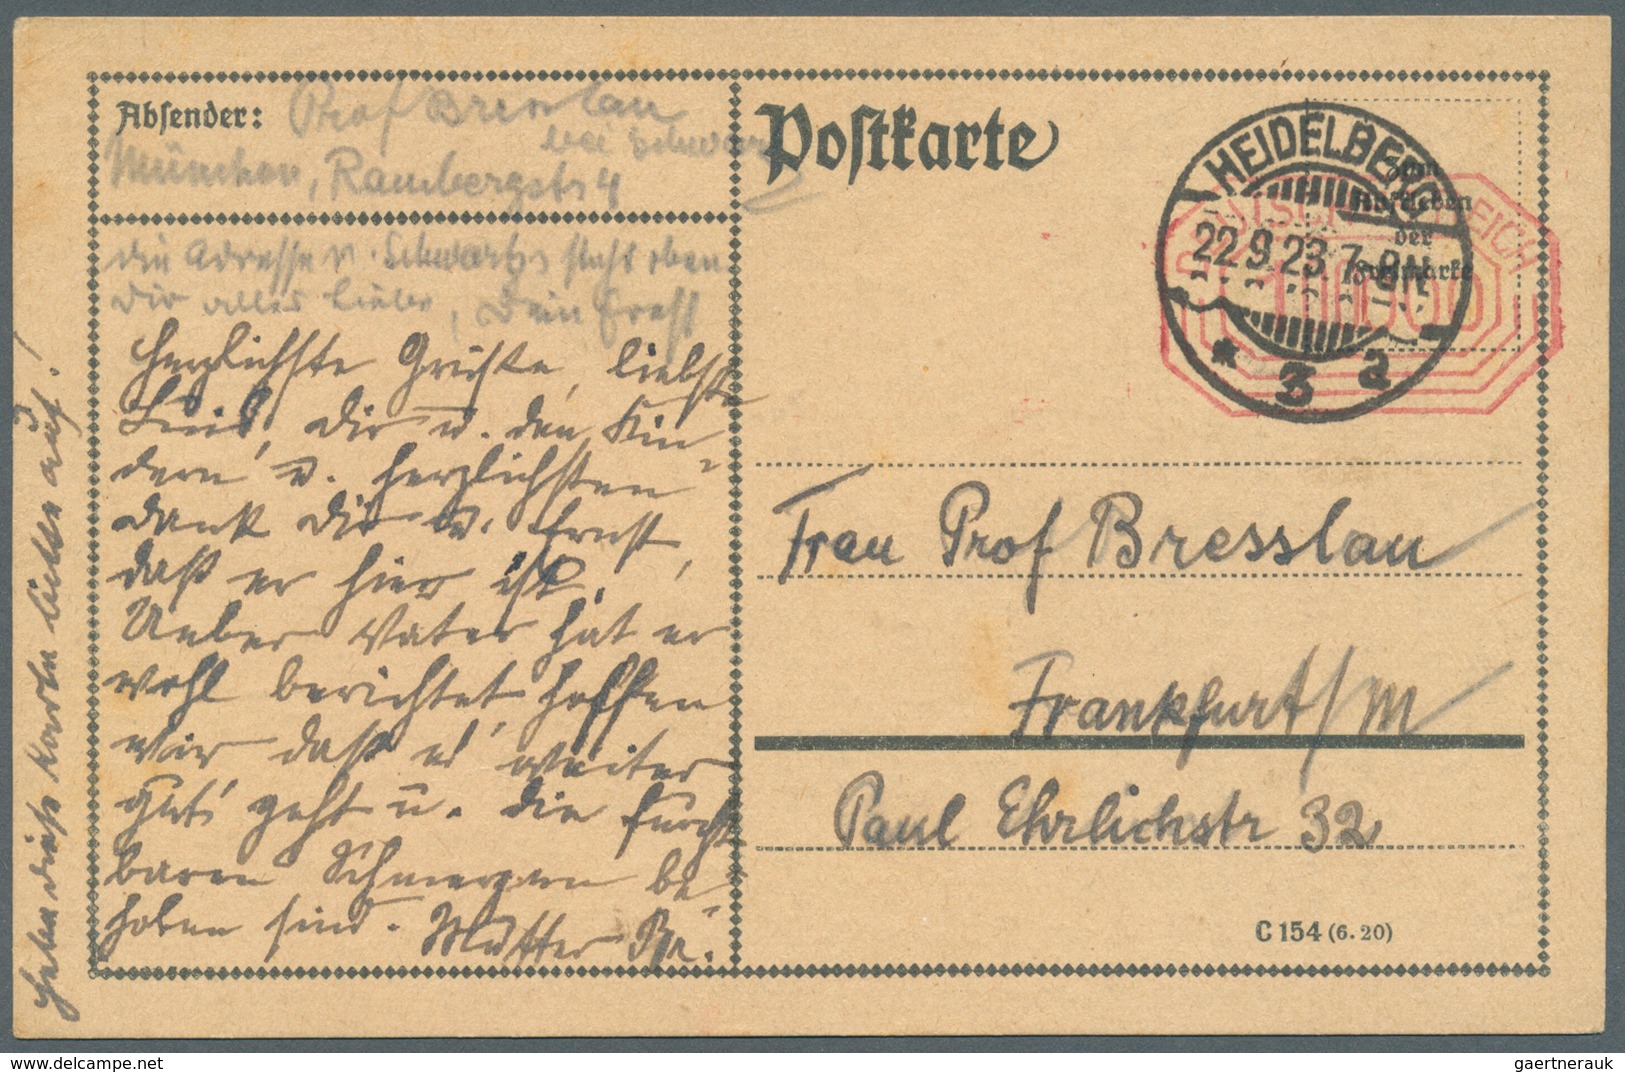 Absender: Prof Bresslau
bei Schwarz
München, Rambergstr 4
Die Adresse v. Schwartz steht oben
Dir alles Liebe, Dein Ernst
Herzlichste Grüsse, liebste
Luis, Dir u. den Kin-
dern u. herzlichsten
Dank Dir u. Ernst,
daß er hier ist.
Ueber Vater hat er
wohl berichtet, hoffen
wir daß es weiter
gut geht u. die furcht
baren Schmerzen be-
hoben sind. Mutter Br.
Hebe diese Karten bitte auf!
Postkarte
HEIDELBERG
22.9.23.7-8N.
* 3 a
DEUTSCHES REICH
Zum
Aufkleben
der
Freimarke
Frau Prof Bresslau
Frankfurt/M
Paul Ehrlichstr 32
C 154 (6.20)
www.delcampe.net
gaertnerauk